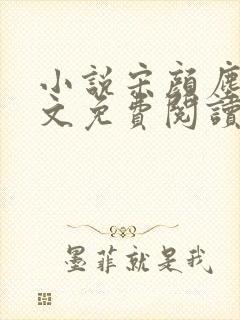 小说宋颜塵
文免費閱讀
墨菲就是我